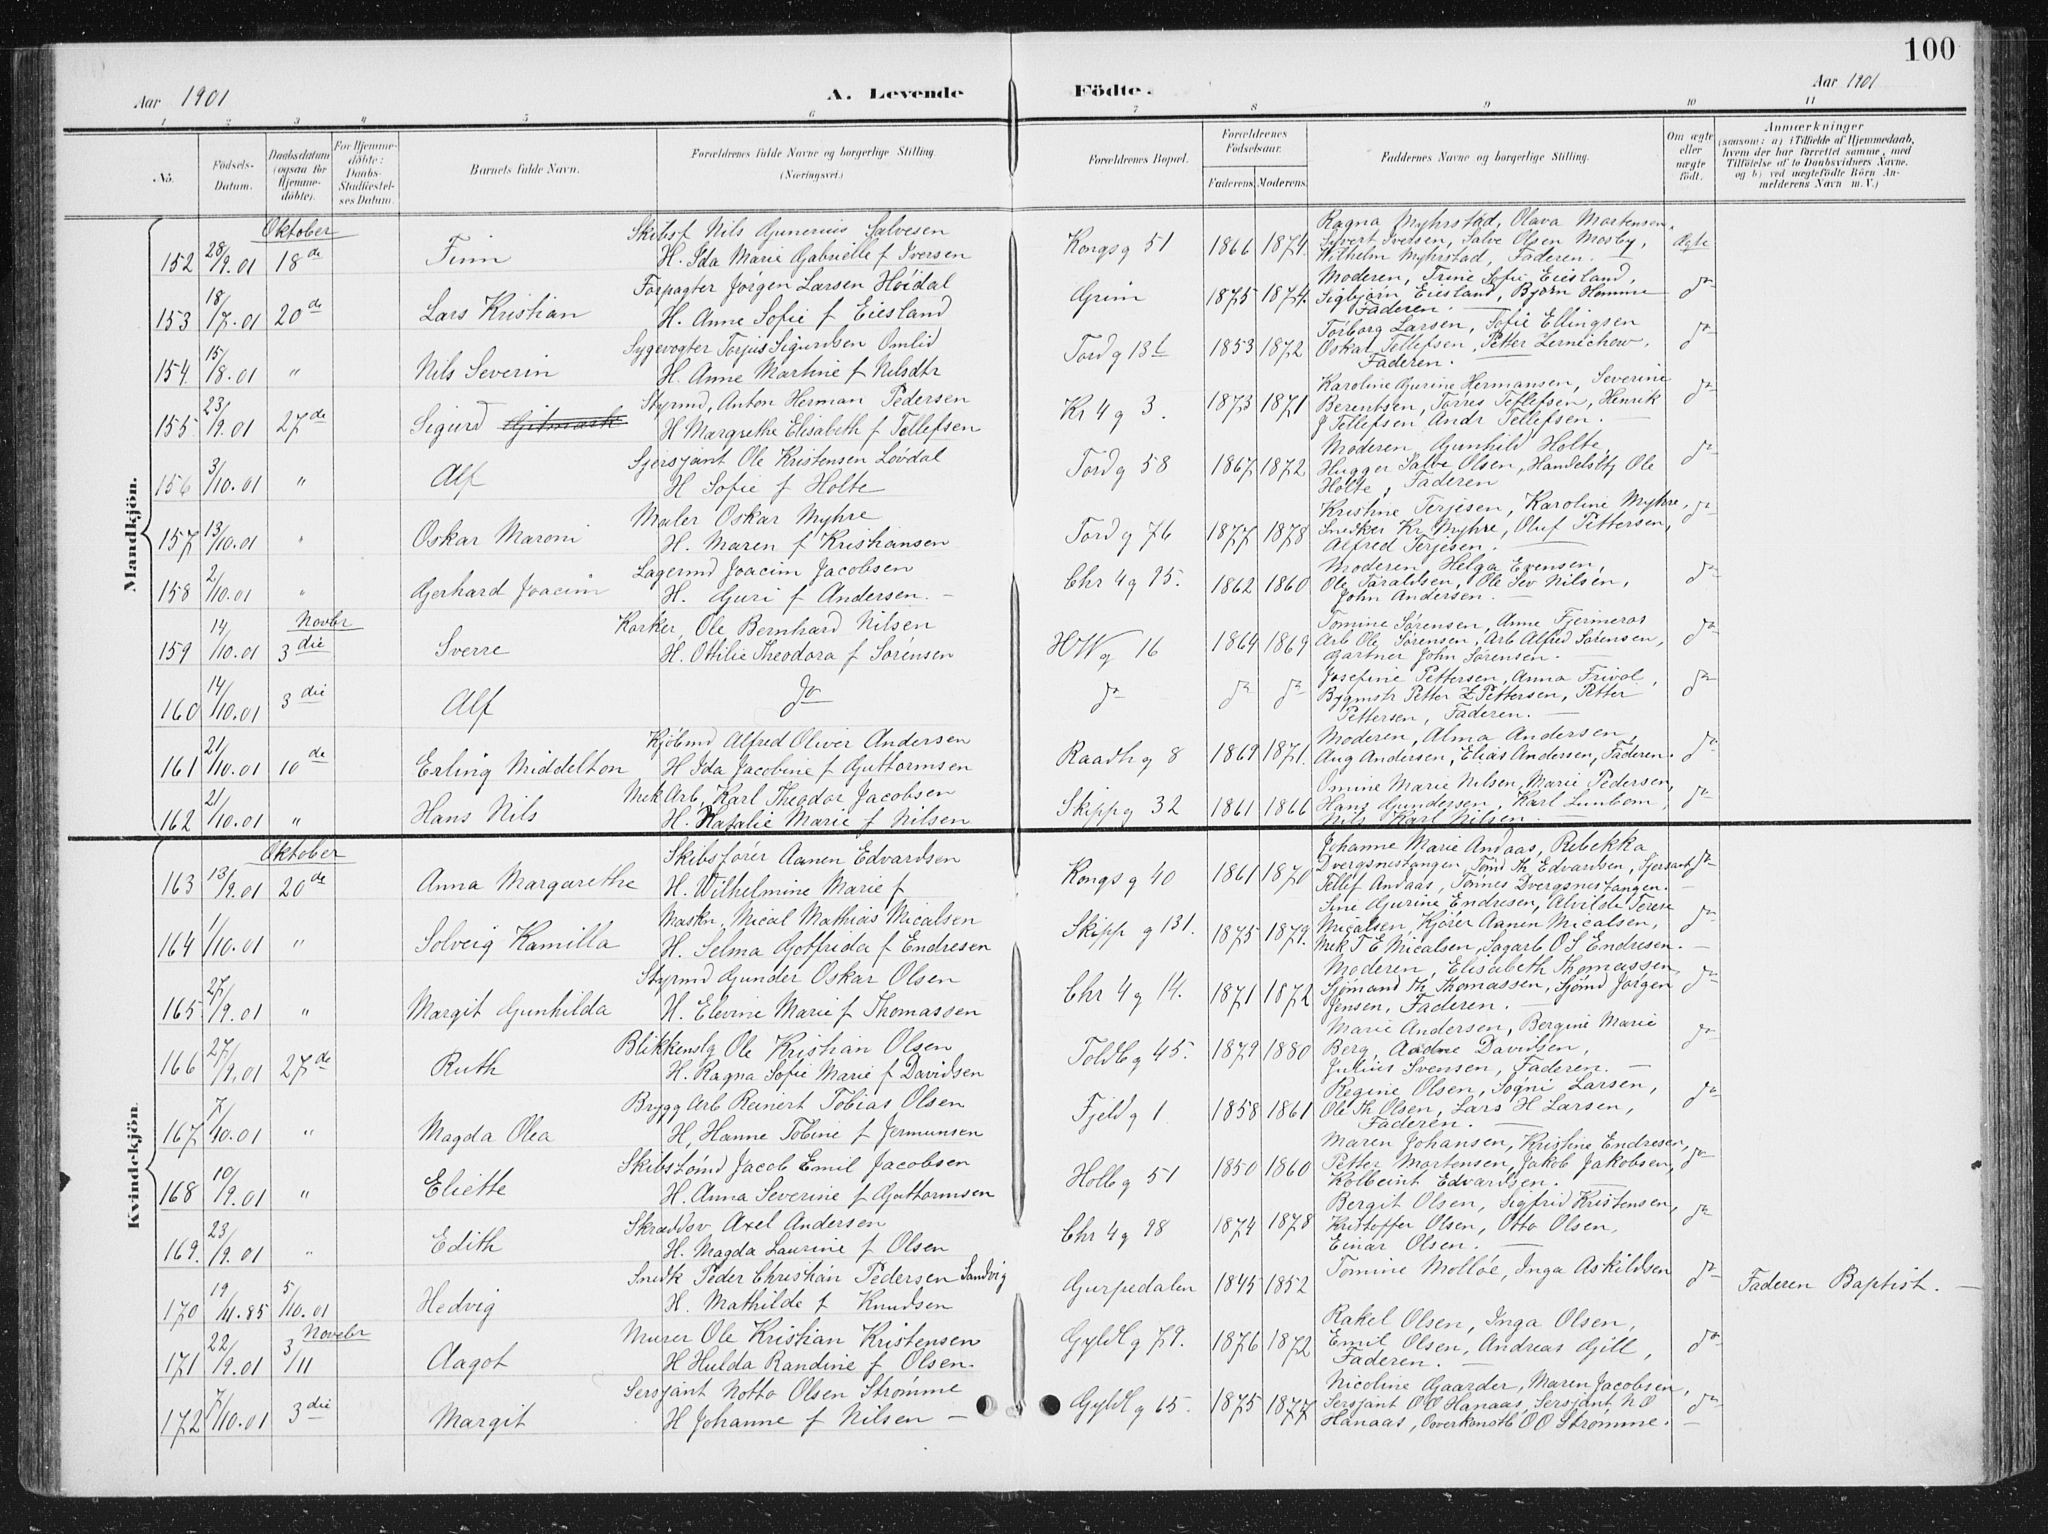 100
Aar 1901
A. Levende
Födte.
Aar 1901
1 2 3 4 5 6 7 8 9 10 11
No.
Födsels-Datum.
Daabsdatum (ogsaa for Hjemme-döbte).
For Hjemme-döbte: Daabs-Stadfæstel-ses Datum.
Barnets fulde Navn.
Forældrenes fulde Navne og borgerlige Stilling. (Næringsvei.)
Forældrenes Bopæl.
Forældrenes Födselsaar.
Faderens. Moderens.
Faddernes Navne og borgerlige Stilling.
Om ægte eller uægte födt.
Anmærkninger
(saasom: a) i Tilfælde af Hjemmedaab, hvem der har forrettet samme, med Tilföielse af to Daabsvidners Navne. og b) ved uægtefödte Börn An-melderens Navn m. V.)
Mandkjön.
Oktober
152 28/9.01 18de Finn
Skibsf Nils Gunerius Salvesen
H. Ida Marie Gabrielle f Iversen
Kongsg 51 1866 1874.
Ragna Myhrstad, Olava Mortensen,
Syvert Iversen, Salve Olsen Mosby,
Wilhelm Myhrstad, Faderen. —
Ægte
153 18/7.01 20de Lars Kristian
Forpagter Jørgen Larsen Høidal
H. Anne Sofie f Eiesland
Grim 1875 1874.
Moderen, Trine Sofie Eiesland,
Sigbjørn Eiesland, Bjørn Homme
Faderen. —
do
154. 15/8.01 " Nils Severin
Sygevogter Torjus Sigurdsen Omlid
H. Anne Martine f Nilsdtr
Tordg 13b 1853 1872
Torborg Larsen, Sofie Ellingsen
Oskar Tellefsen, Petter Zernichow,
Faderen.
do
155. 23/9.01 27de Sigurd
Styrmd, Anton Herman Pedersen
H Margrethe Elisabeth f Tellefsen
Kr 4 g 3. 1873 1871
Karoline Gurine Hermansen, Severine
Berentsen, Torres Tellefsen, Henrik
J Tellefsen Andr Tellefsen. —
do
156 3/10.01 " Alf
Sersjant Ole Kristensen Løvdal
H Sofie f Holte
Tordg 58 1867 1872
Moderen, Gunhild Holte
Hugger Salve Olsen, Handelsbtj Ole
Holte, Faderen
do
157 13/10.01 " Oskar Maroni
Maler Oskar Myhre
H. Maren f Kristiansen
Tordg 76 1877 1878
Kristine Terjesen, Karoline Myhre,
Snedker Kr. Myhre, Oluf Pettersen,
Alfred Terjesen. —
do
158 2/10.01 " Gerhard Joacim
Lagermd Joacim Jacobsen
H. Guri f Andersen. —
Chr 4 g 95. 1862 1860
Moderen, Helga Evensen,
Ole Taraldsen, Ole Sev Nilsen,
John Andersen. —
do
Novbr
159 14/10.01 3die Sverre
Korker, Ole Bernhard Nilsen
H. Ottilie Theodora f Sørensen
HWg 16 1864 1869
Tomine Sørensen, Anne Fjermeros
Arb Ole Sørensen, Arb Alfred Sørensen,
Gartner John Sørensen. —
do
160 14/10.01 3die Alf
do
do do do
Josefine Pettersen, Anna Frivol,
Bygmstr Petter Z Pettersen, Petter
Pettersen, Faderen. —
do
161 21/10.01 10de Erling Middelton
Kjøbmd Alfred Oliver Andersen
H Ida Jacobine f Guttormsen
Raadhg 8 1869 1871.
Moderen, Alma Andersen,
Aug Andersen, Elias Andersen, Faderen.
do
162 21/10.01 " Hans Nils
Mek Arb, Karl Theodor Jacobsen
H. Natalie Marie f Nilsen
Skippg 32 1861 1866
Omine Marie Nilsen, Marie Pedersen,
Hans Gundersen, Karl Lunbom,
Nils Karl Nilsen. —
do
Kvindekjön.
Oktober
163 13/9.01 20de Anna Margarethe
Skibsfører Aanen Edvardsen
H. Wilhelmine Marie f
Kongsg 40 1861 1870
Johanne Marie Andaas, Rebekka
Dvergsnestangen, Tømd Th Edvardsen, Sjersant
Tellef Andaas, Tønnes Dvergsnestangen. —
do
164 1/10.01 " Solveig Kamilla
Maskn, Mical Mathias Micalsen
H. Selma Gotfrida f Endresen
Skipp g 131. 1875 1879.
Sine Gurine Endresen, Alvilde Terese
Micalsen, Kjører Aanen Micalsen,
Mek T E Micalsen, Sagarb O S Endresen. —
do
165 27/9.01 " Margit Gunhilda
Styrmd Gunder Oskar Olsen
H. Elevine Marie f Thomassen
Chr 4 g 14. 1871 1872
Moderen, Elisabeth Thomassen,
Sjømand Th Thomassen, Sjømd Jørgen
Jensen, Faderen. —
do
166 27/9.01 27de Ruth
Blikkenslg Ole Kristian Olsen
H. Ragna Sofie Marie f Davidsen
Toldbg 45. 1879 1880
Marie Andersen, Bergine Marie
Berg, Andre Davidsen,
Julius Svensen, Faderen. —
do
167 7/10.01 " Magda Olea
Brygg Arb Reinert Tobias Olsen
H. Hanne Tobine f Jermunsen
Fjeldg 1 1858 1861
Regine Olsen, Sogni Larsen,
Ole Th Olsen, Lars H Larsen,
Faderen. —
do
168 10/9.01 " Eliette
Skibstømd Jacob Emil Jacobsen
H. Anna Severine f Guttormsen
Holbg 51 1850 1860
Maren Johansen, Kristine Endresen,
Petter Mortensen, Jakob Jakobsen,
Kolbeint Edvardsen. —
do
169. 23/9.01 " Edith
Skræddsv Axel Andersen
H. Magda Laurine f Olsen
Chr 4 g 98 1874 1878
Bergit Olsen, Sigfrid Kristensen,
Kristoffer Olsen, Otto Olsen,
Einar Olsen. —
do
170 19/11.85 5/10.01 Hedvig
Snedk Peder Christian Pedersen Sandvig
H. Mathilde f Knudsen
Gurpedalen 1845 1852
Tomine Molløe, Inga Askildsen
do
Faderen Baptist. —
Novebr
171 22/9.01 3/11 Aagot
Murer Ole Kristian Kristensen
H Hulda Randine f Olsen.
Gyldlg 79. 1876 1872
Rakel Olsen, Inga Olsen,
Emil Olsen, Andreas Gill,
Faderen. —
do
172 7/10.01 3die Margit
Sersjant Notto Olsen Strømme
H Johanne f Nilsen —
Gyldlg 65. 1875 1877
Nicoline Gaarder, Maren Jacobsen,
Sersjant O O Hanaas, Sersjant N O
Hanaas, Ooverkonstb O O Strømme. —
do